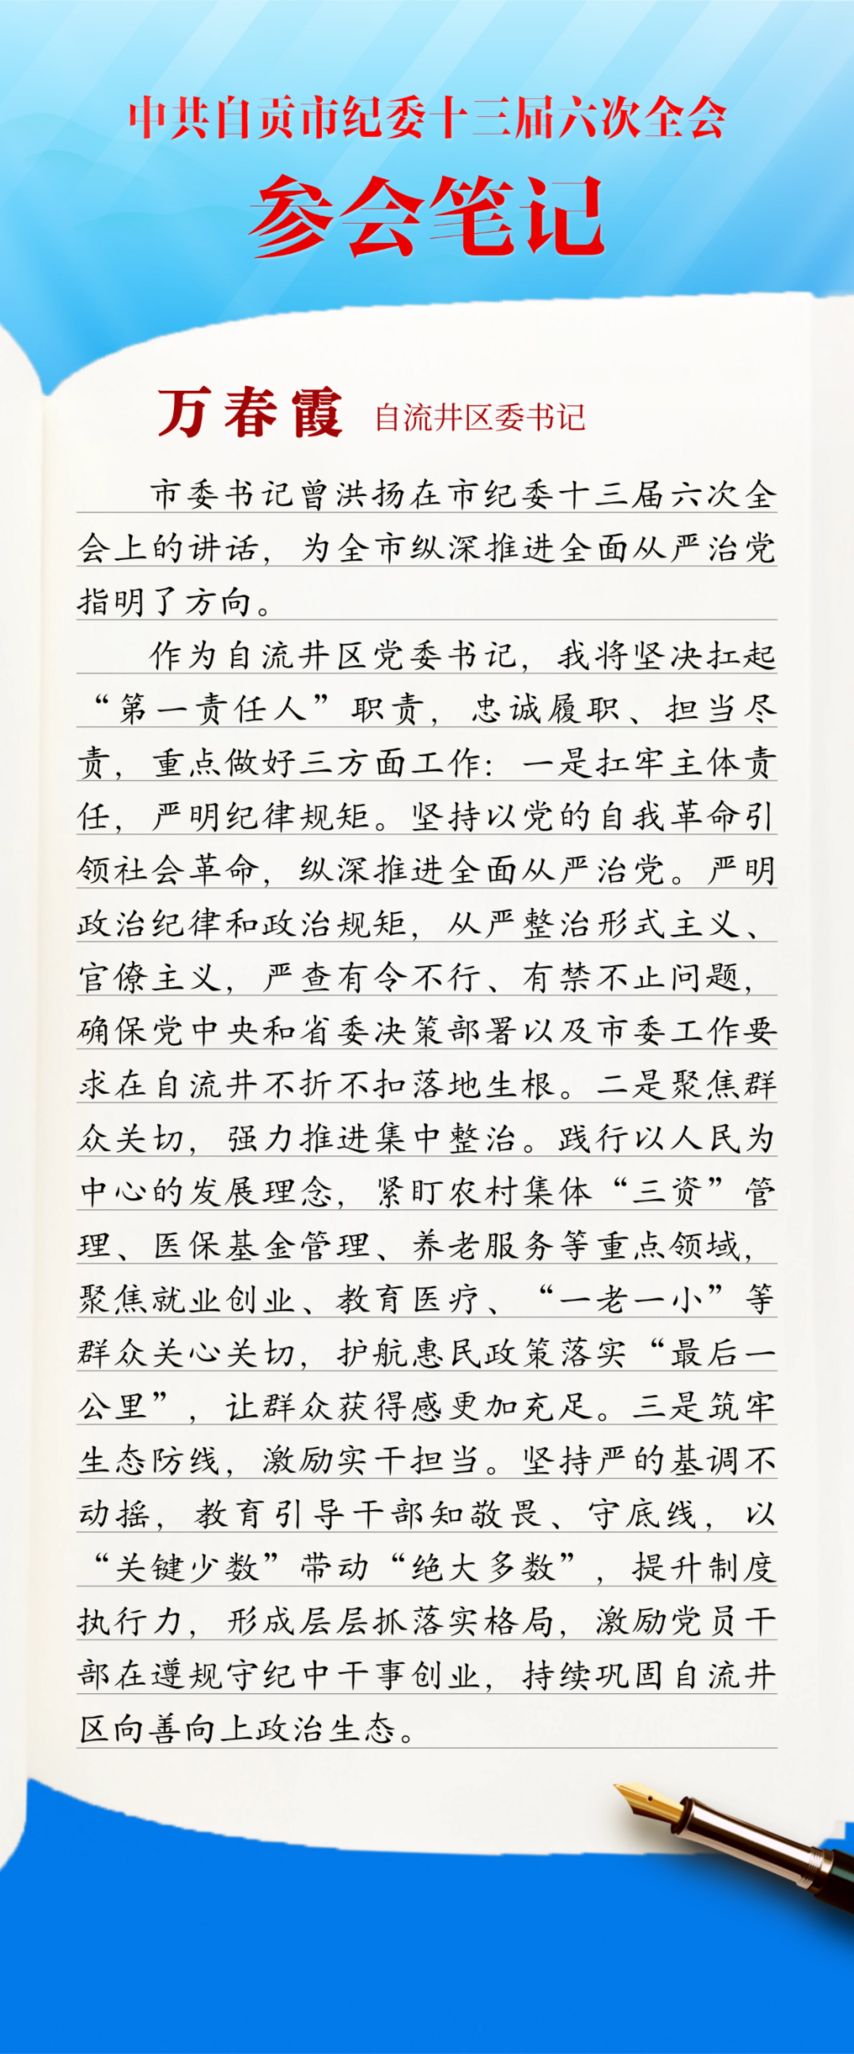 中共自贡市纪委十三届六次全会
参会笔记
万春霞 自流井区委书记
市委书记曾洪扬在市纪委十三届六次全
会上的讲话，为全市纵深推进全面从严治党
指明了方向。
作为自流井区党委书记，我将坚决扛起
“第一责任人”职责，忠诚履职、担当尽
责，重点做好三方面工作：一是扛牢主体责
任，严明纪律规矩。坚持以党的自我革命引
领社会革命，纵深推进全面从严治党。严明
政治纪律和政治规矩，从严整治形式主义、
官僚主义，严查有令不行、有禁不止问题，
确保党中央和省委决策部署以及市委工作要
求在自流井不折不扣落地生根。二是聚焦群
众关切，强力推进集中整治。践行以人民为
中心的发展理念，紧盯农村集体“三资”管
理、医保基金管理、养老服务等重点领域，
聚焦就业创业、教育医疗、“一老一小”等
群众关心关切，护航惠民政策落实“最后一
公里”，让群众获得感更加充足。三是筑牢
生态防线，激励实干担当。坚持严的基调不
动摇，教育引导干部知敬畏、守底线，以
“关键少数”带动“绝大多数”，提升制度
执行力，形成层层抓落实格局，激励党员干
部在遵规守纪中干事创业，持续巩固自流井
区向善向上政治生态。